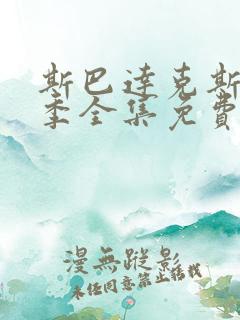 斯巴達克斯
季全集免費
漫無蹤影
未經同意禁止轉載